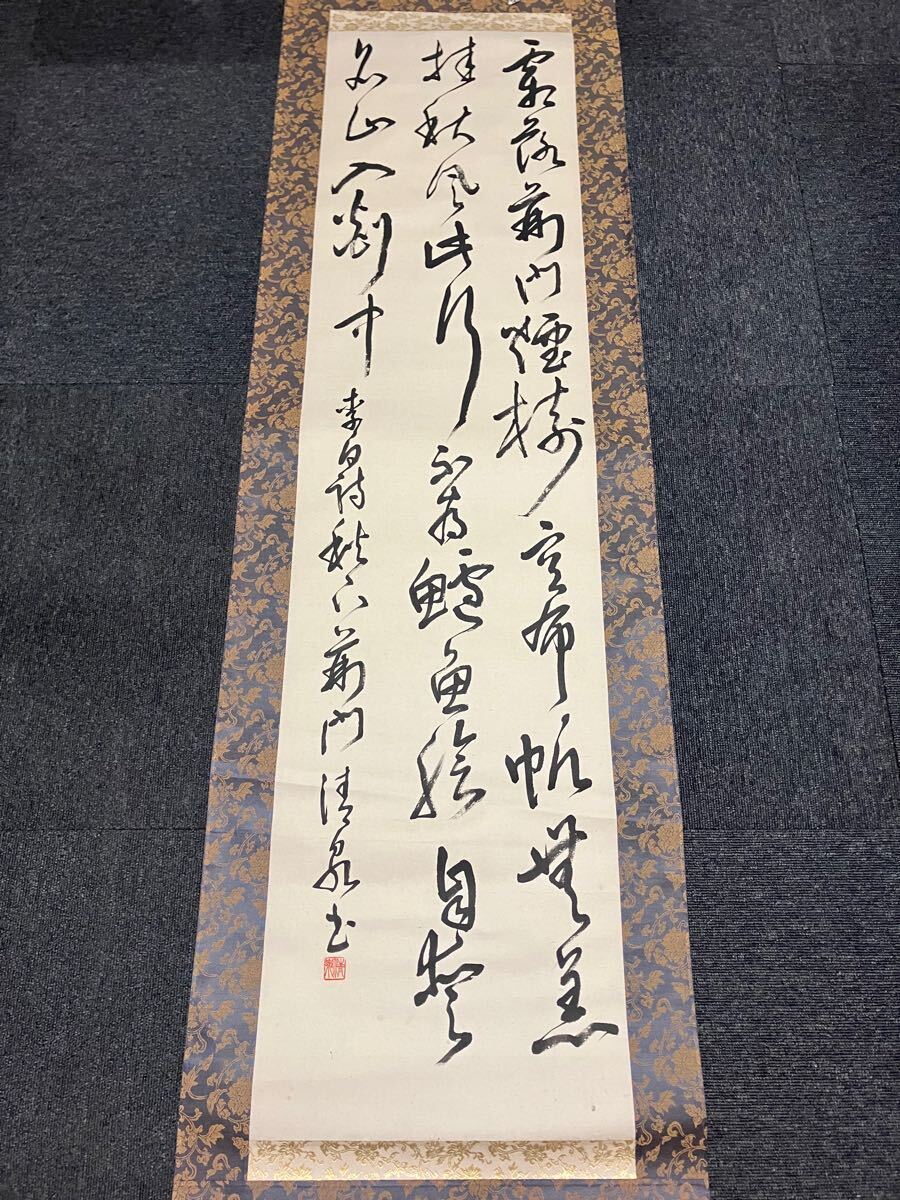 霜落荊門煙樹空布帆無恙
挂秋風此行不為鱸魚膾自愛
名山入剡中 李白詩秋下荊門 清泉書